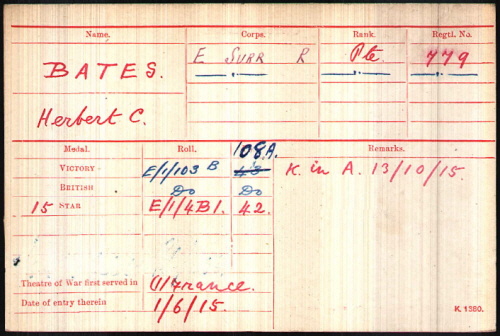 Name. Corps. Rank. Regtl. No.
BATES. E SURR R Pte. 779
Herbert C.
Medal. Roll. 108A. Remarks.
VICTORY E/1/103 B 43 K. in A. 13/10/15.
BRITISH Do Do
15 STAR E/1/4B1. 42.
Theatre of War first served in (1) France.
Date of entry therein 1/6/15.
K. 1380.